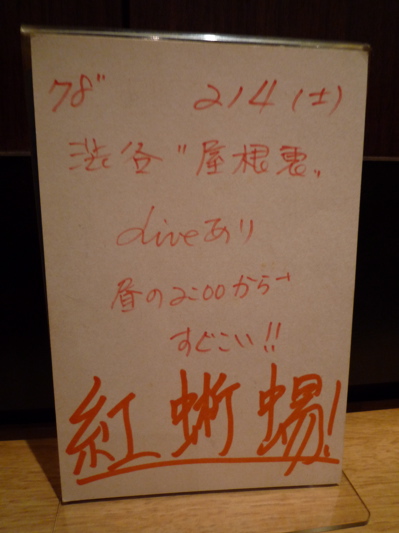 78" 2/4 (土)
渋谷"屋根裏"
liveあり
昼の2:00から→
すごい!!
紅蜥蜴!